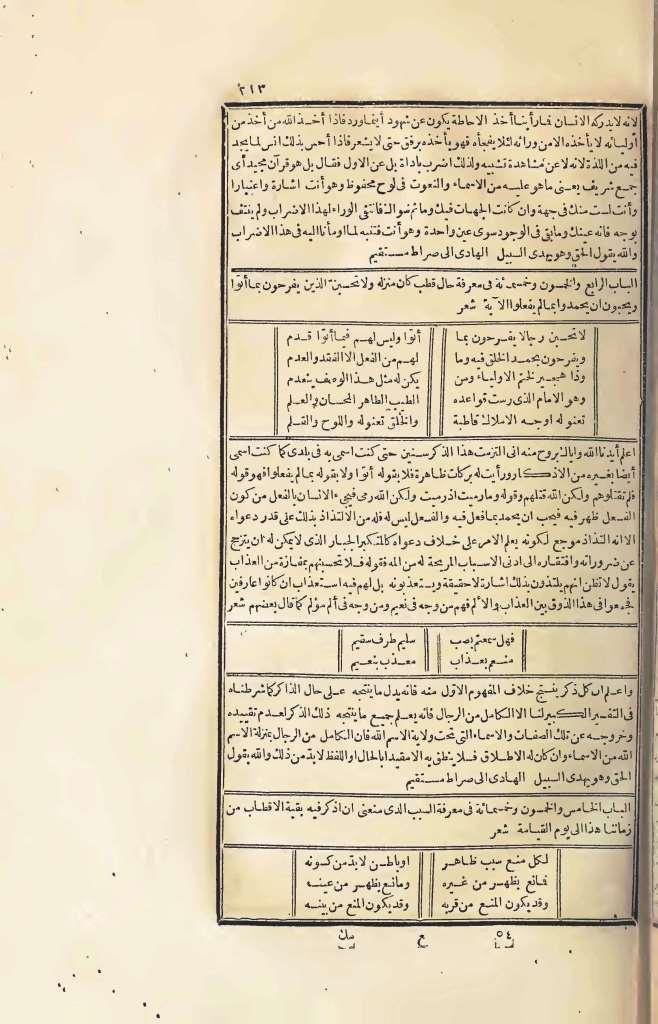 ٢١٣
لانه لا يدركه الانسان فارأينا أخذ الاحاطة يكون عن شهود أينما ورد فاذا أخذ الله من أخذ من
أوليائه لا يأخذه الا من ورائه لئلا يفجأه فهو يأخذه برفق حتى لا يشعر فاذا أحس بذلك انس لما يجد
فيه من اللذة لانه لا عن مشاهدة تقيه ولذلك اضرب باداة بل عن الاول فقال بل هو قرآن مجيد أى
جمع شريف يعنى ما هو عليه من الاسماء والنعوت فى لوح محفوظ وهو أنت اشارة واعتبارا
وأنت لست منك فى جهة وان كانت الجهات فيك وما ثم سوالك فانتفى الوراء لهذا الاضراب ولم ينتف
بوجه فانه عينك وما بقى فى الوجود سوى عين واحدة وهو أنت فتنبه لما اومأنا اليه فى هذا الاضراب
والله يقول الحق وهو يهدى السبيل الهادى الى صراط مستقيم
الباب الرابع والخمسون وخمسمائة فى معرفة حال قطب كان منزله ولا تحسبن الذين يفرحون بما أتوا
ويحبون ان يحمدوا بما لم يفعلوا الآية شعر
لا تحسبن رجالا يفرحون بما أتوا وليس لهم فيما أتوا قدم
ويفرحون بحمد الخلق فيه وما لهم من الفعل الا الفقد والعدم
وذا هجير ختم الاولياء ومن يكن له مثل هذا الوصف ينعدم
وهو الامام الذى رست قواعده الطيب الطاهر المحسان والعلم
تعنو له اوجه الاملاك قاطبة والخلق تعنو له واللوح والقلم
اعلم أيدنا الله واياك بروح منه انى التزمت هذا الذكر سنين حتى كنت اسمى به فى بلدى كما كنت اسمى
أيضا بغيره من الاذكار ورأيت له بركات ظاهرة فلا يقوله أتوا ولا يقوله بما لم يفعلوا فهو قوله
فلم تقتلوهم ولكن الله قتلهم وقوله وما رميت اذ رميت ولكن الله رمى فيجىء الانسان بالفعل من كون
الفعل ظهر فيه فيحب ان يحمد بما فعل فيه والفعل ليس له فله من الالتذاذ بذلك على قدر دعواه
الا انه التذاذ موجع لكونه يعلم الامر على خلاف دعواه كالمتكبر الجبار الذى لا يمكن له ان ينزح
عن ضروراته وافتقاره الى ادنى الاسباب المريحة له من ألمه فقوله فلا تحسبنهم بمفازة من العذاب
يقول لا تظن انهم يلتذون بذلك اشارة لا حقيقة ويستعذبونه بل لهم فيه استعذاب ان كانوا عارفين
فجمعوا فى هذا الذوق بين العذاب والالم فهم من وجه فى نعيم ومن وجه فى ألم مؤلم كما قال بعضهم شعر
فهل سمعتم بصب سليم طرف سقيم
منعم بعذاب معذب بنعيم
واعلم ان كل ذكر ينتج خلاف المفهوم الاول منه فانه يدل ما ينتجه على حال الذاكر كما شرطناه
فى التفسير الكبير لنا الا الكامل من الرجال فانه يعلم جميع ما ينتجه ذلك الذكر لعدم تقييده
وخروجه عن تلك الصفات والاسماء التى تحت ولاية الاسم الله فان الكامل من الرجال بمنزلة الاسم
الله من الاسماء وان كان له الاطلاق فلا ينطق به الا مقيدا بالحال او اللفظ لا بد من ذلك والله يقول
الحق وهو يهدى السبيل الهادى الى صراط مستقيم
الباب الخامس والخمسون وخمسمائة فى معرفة السبب الذى منعنى ان اذكر فيه بقية الاقطاب من
زماننا هذا الى يوم القيامة شعر
لكل منع سبب ظاهر او باطن لا بد من كونه
فمانع يظهر من غيره ومانع يظهر من عينه
وقد يكون المنع من قربه وقد يكون المنع من بينه
٥٤ ع مك